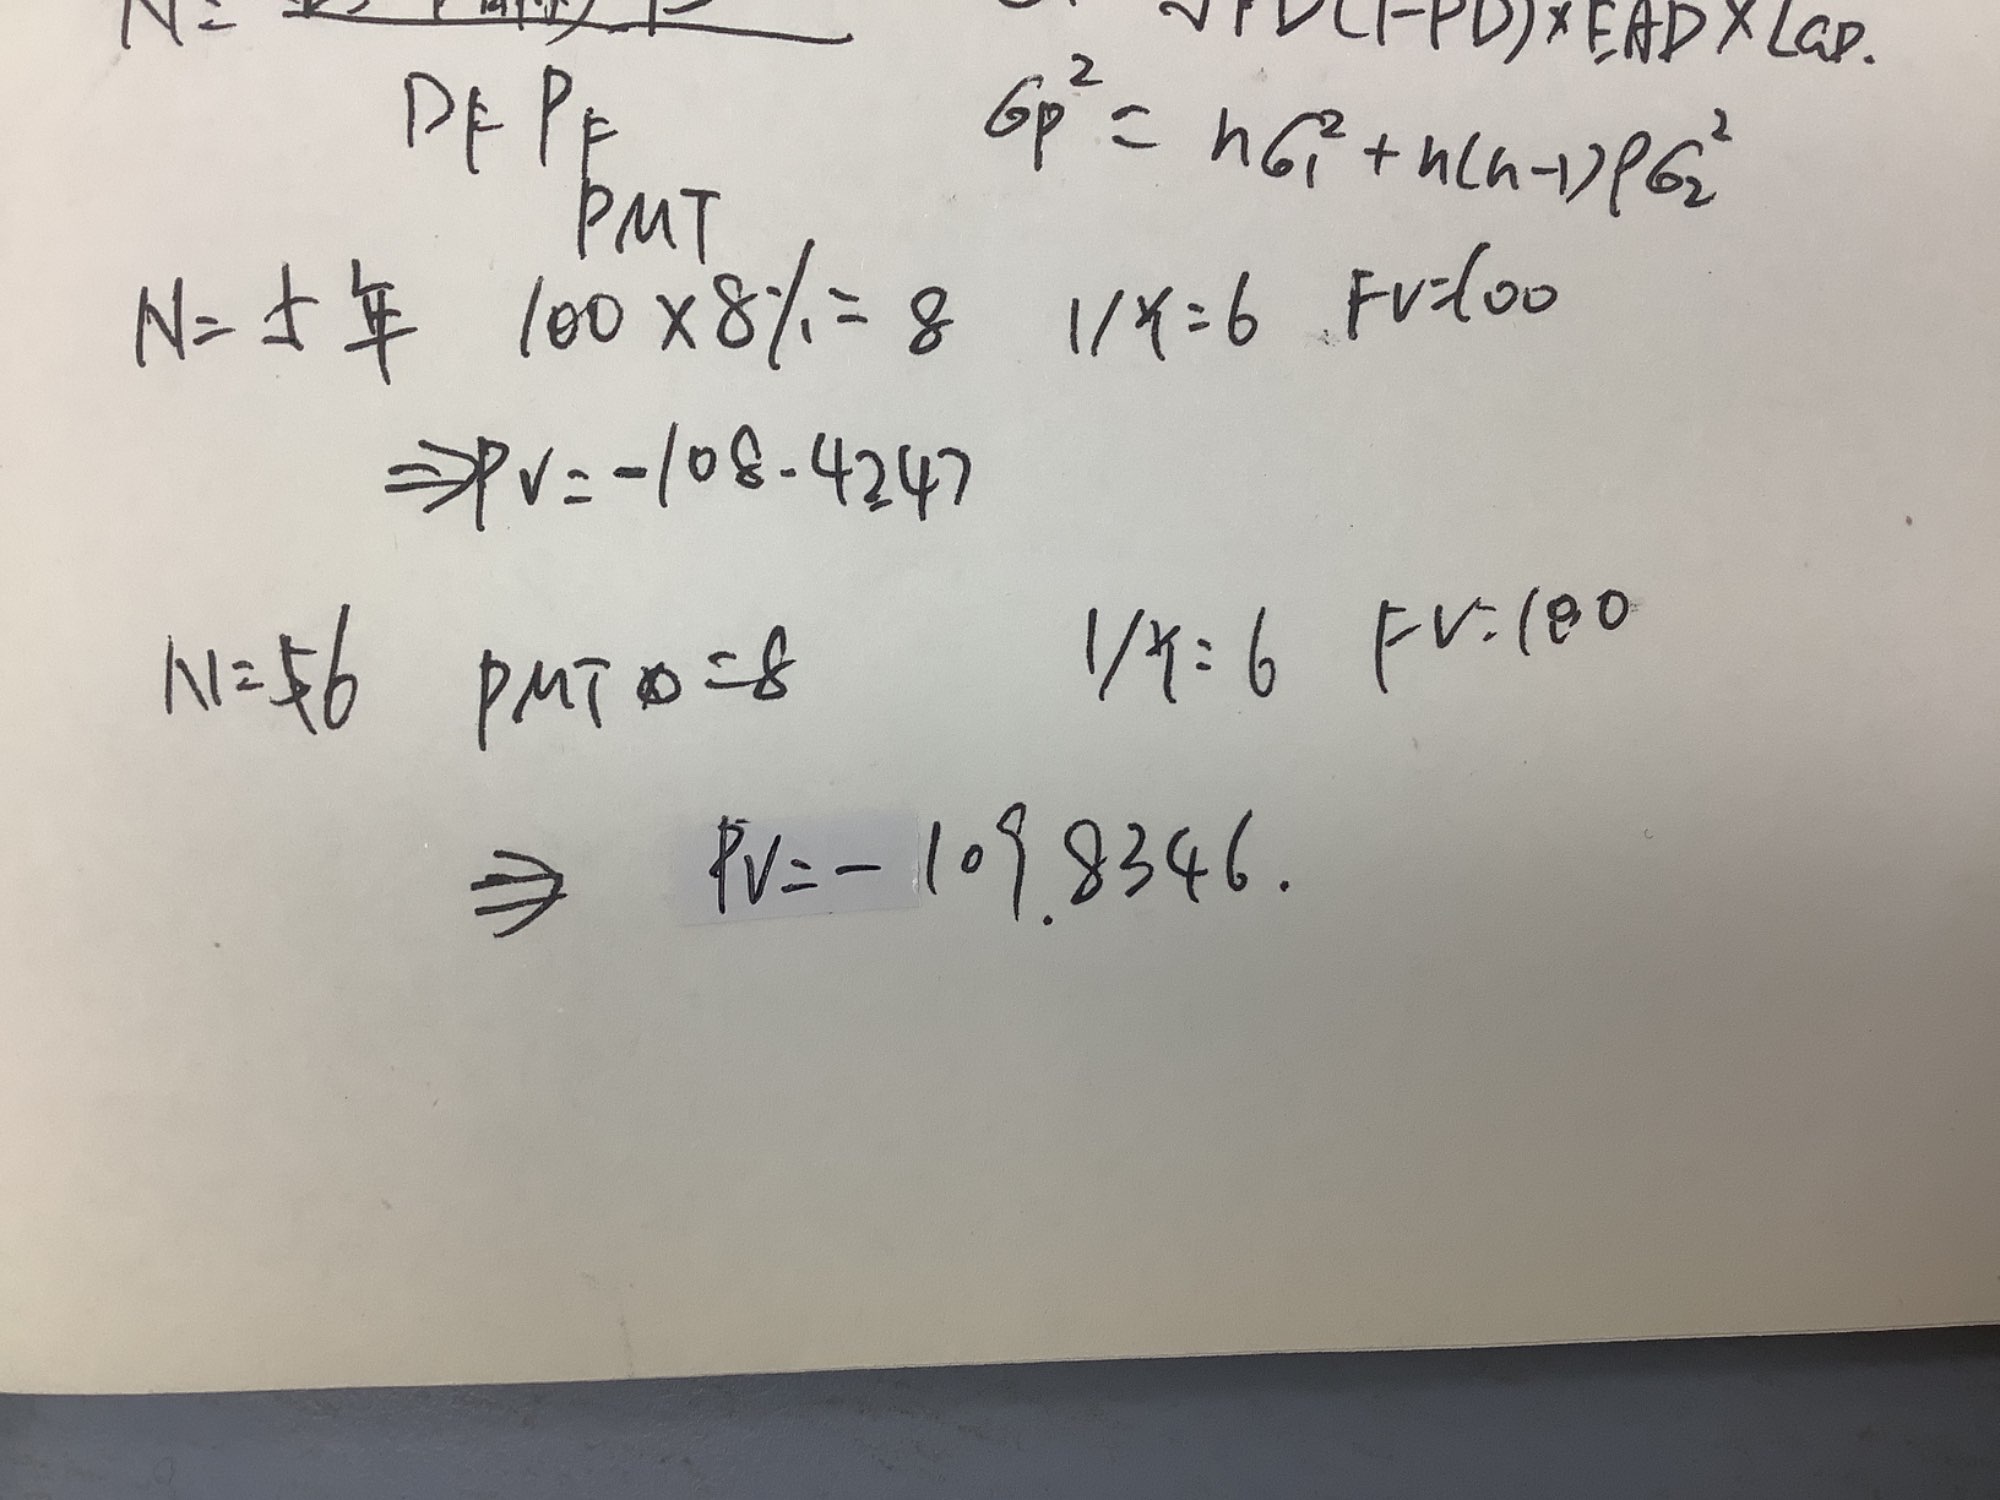 N=
√PD(1-PD)×EAD×LGD.
DF PF
σp² = nσ₁² + n(n-1)ρσ₂²
PMT
N=5年 100×8%=8 1/Y=6 FV=100
⇒PV=-108.4247
N=56 PMT=8 1/Y=6 FV=100
⇒ PV=-109.8346.